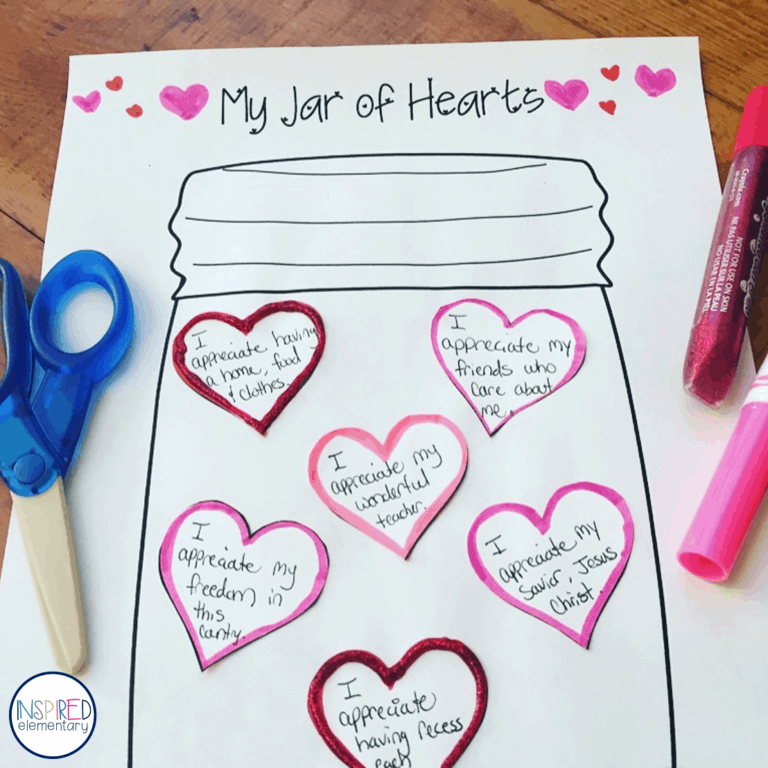 My Jar of Hearts
I
appreciate having
a home, food
& clothes.
I
appreciate my
friends who
care about
me.
I
appreciate my
wonderful
teacher.
I
appreciate my
freedom in
this
conty.
I
appreciate my
Savior, Jesus
Christ.
I
appreciate
having recess
each
Crayola.com
NOT FOR USE ON SKIN
NE PAS UTILISER SUR LA PEAU
NO USAR EN LA PIEL
INSPIRED
elementary